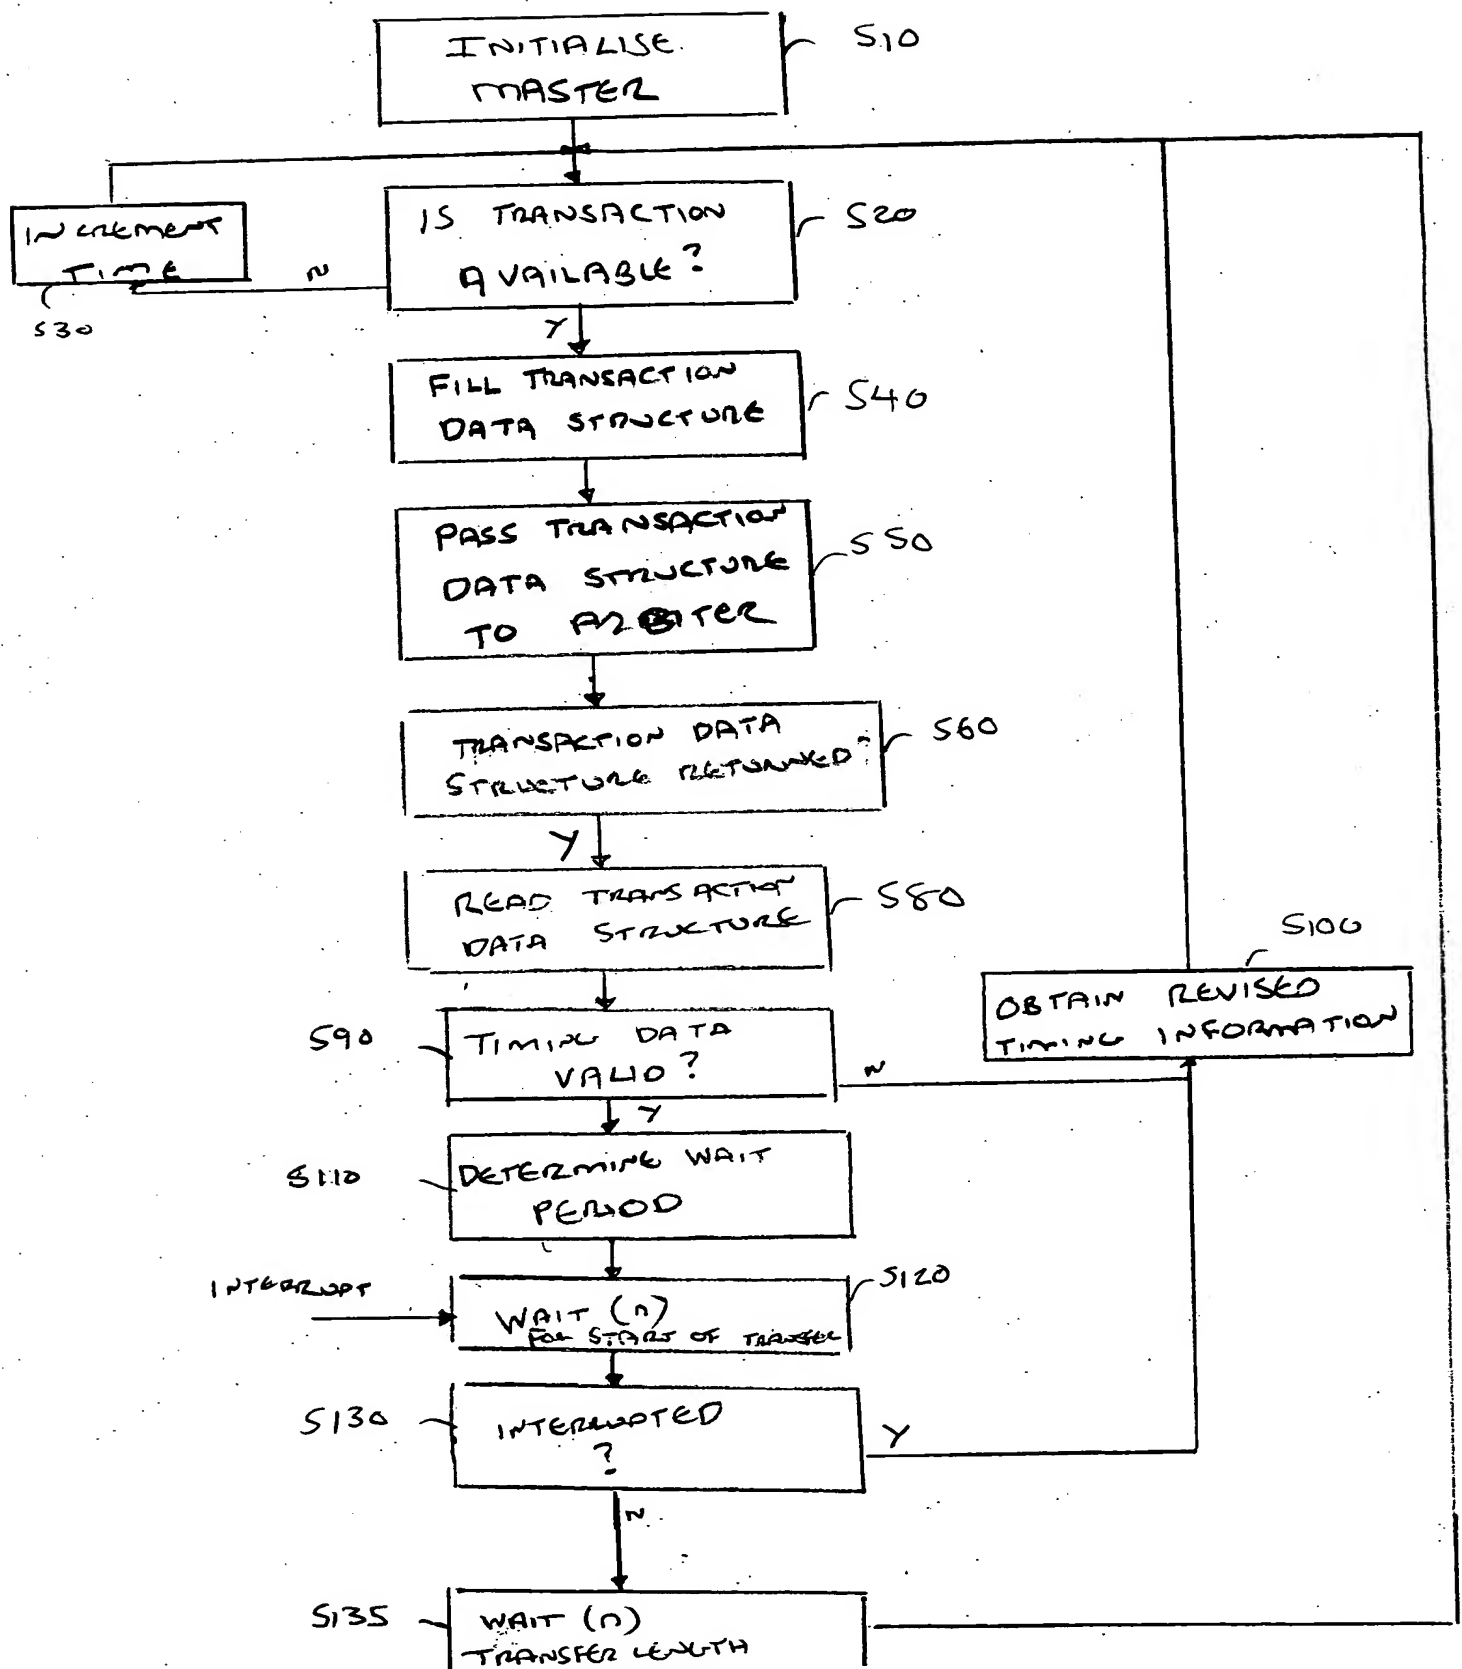 INITIALISE
MASTER
S10
INCREMENT
TIME
S30
N
IS TRANSACTION
AVAILABLE?
S20
Y
FILL TRANSACTION
DATA STRUCTURE
S40
PASS TRANSACTION
DATA STRUCTURE
TO ARBITER
S50
TRANSACTION DATA
STRUCTURE RETURNED?
S60
Y
READ TRANSACTION
DATA STRUCTURE
S80
S100
OBTAIN REVISED
TIMING INFORMATION
S90
TIMING DATA
VALID?
N
Y
S110
DETERMINE WAIT
PERIOD
INTERRUPT
S120
WAIT (n)
FOR START OF TRANSFER
S130
INTERRUPTED
?
Y
N
S135
WAIT (n)
TRANSFER LENGTH